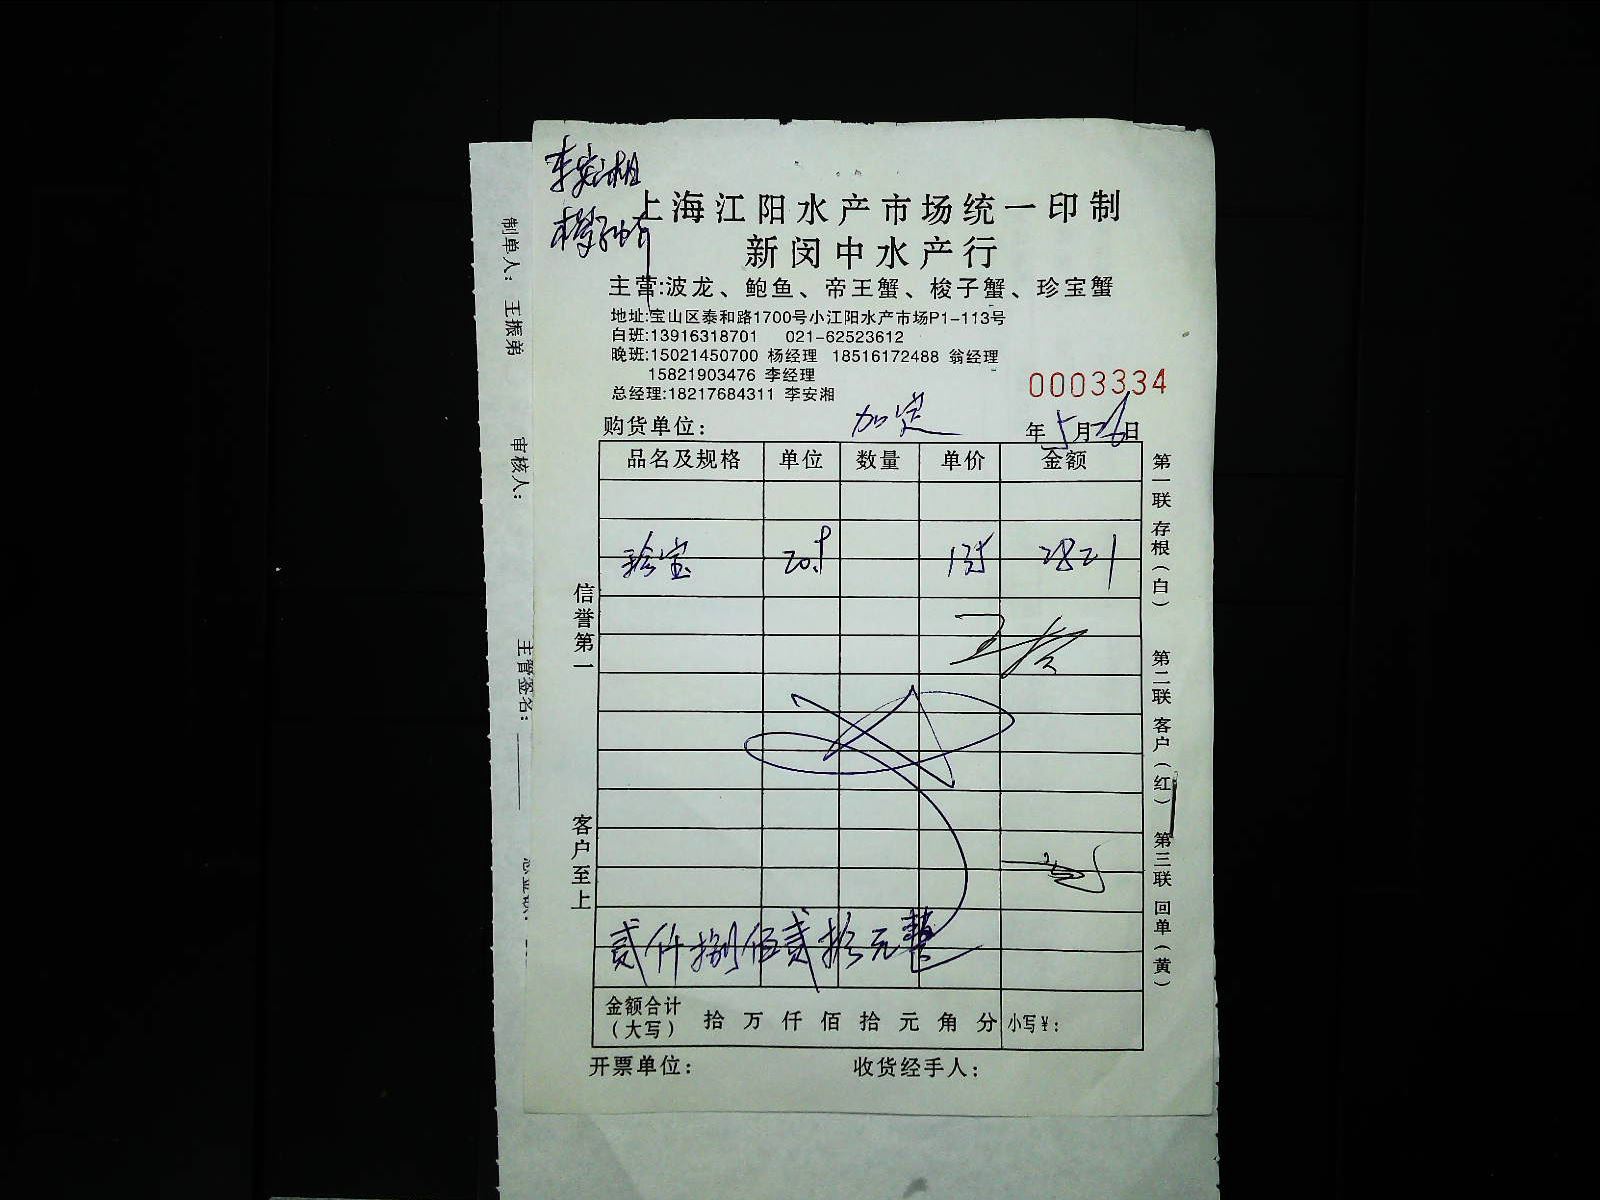 李安湘
上海江阳水产市场统一印制
新闵中水产行
主营:波龙、鲍鱼、帝王蟹、梭子蟹、珍宝蟹
地址:宝山区泰和路1700号小江阳水产市场P1-113号
白班:13916318701 021-62523612
晚班:15021450700 杨经理 18516172488 翁经理
15821903476 李经理
总经理:18217684311 李安湘
0003334
购货单位: 加定 年5月26日
品名及规格 单位 数量 单价 金额
珍宝 20.9 135 2821
贰仟捌佰贰拾元整
金额合计
(大写) 拾 万 仟 佰 拾 元 角 分 小写¥:
开票单位: 收货经手人:
信誉第一
客户至上
第一联 存根(白)
第二联 客户(红)
第三联 回单(黄)
制单人: 王振弟
审核人:
主管签名: